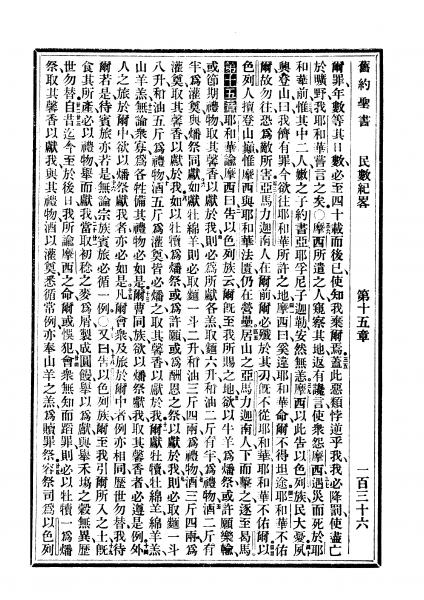 舊約聖書 民數紀畧 第十五章 一百三十六
爾罪年數等其日數必至四十載而後已使知我棄爾焉蓋此惡類悖逆乎我我必降罰使盡亡
於曠野我耶和華嘗言之矣○摩西所遣之人窺察其地返有讒言使衆怨摩西遇災而死於耶
和華前惟其中二人嫩之子約書亞耶孚尼子迦勒安然無恙摩西以此告以色列族民大憂夙
興登山曰我儕有罪今欲往耶和華所許之地摩西曰奚違耶和華命爾不得坦途耶和華不佑
爾故勿往恐爲敵所害亞馬力迦南人在爾前爾必殲於其刃旣不從耶和華耶和華不佑爾以
色列人擅登山巔惟摩西與耶和華法匱仍在營壘居山之亞馬力迦南人下而擊之逐至曷馬
第十五章耶和華諭摩西曰告以色列族云爾旣至我所賜之地欲以牛羊爲燔祭或許願樂輸
或節期禮物取其馨香以獻於我則必爲所獻各羔取麵六升和油二斤有半爲禮物酒二斤有
半爲灌奠與燔祭同獻如獻牡綿羊則必取麵一斗二升和油三斤四兩爲禮物酒三斤四兩爲
灌奠取其馨香以獻於我如以牡犢爲燔祭或爲許願或爲酬恩之祭以獻於我則必取麵一斗
八升和油五斤爲禮物酒五斤爲灌奠皆必燔之取其馨香以獻於我爾獻牡犢牡綿羊綿羊羔
山羊羔無論衆寡爲各牲備其禮物必如是爾曹同族欲以燔祭獻我取其馨香者必遵是例外
人之旅於爾中欲以燔祭獻我者亦必如是凡爾會衆及旅於爾中者例亦相同歷世勿替我待
爾若是待賓旅亦若是無論宗族賓旅必循一例○又曰告以色列族爾至我引爾所入之土旣
食其所產必以禮物舉而獻我當取初稔之麥爲屑製成圓饅舉以爲獻與舉禾塲之穀無異歷
世勿替自昔迄今至於後日我所諭摩西之命爾或悞犯會衆無知而蹈罪則必以牡犢一爲燔
祭取其馨香以獻我與其禮物酒以灌奠悉循常例亦奉山羊之羔爲贖罪祭容祭司爲以色列